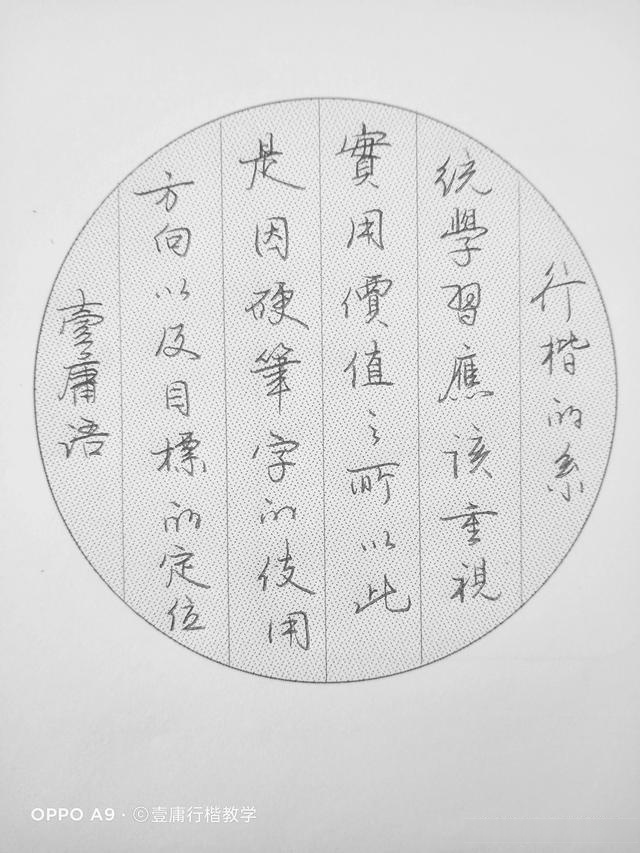 行楷的系
统學習應该重視
實用價值之所以此
是因硬筆字的使用
方向以及目標的定位
壹庸语
OPPO A9 · ©壹庸行楷教学